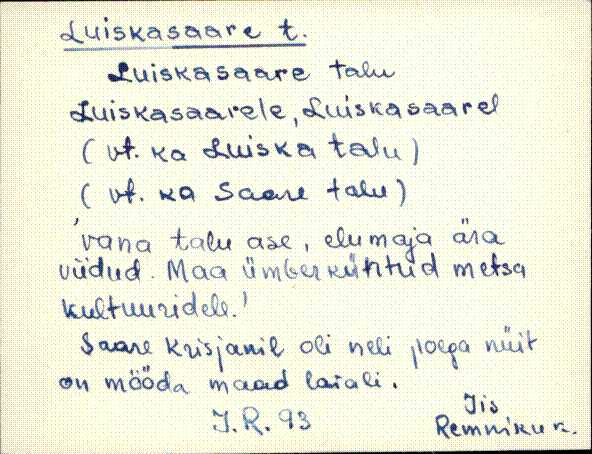 Luiskasaare t.
Luiskasaare talu
Luiskasaarele, Luiskasaarel
(vt. ka Luiska talu)
(vt. ka Saare talu)
'vana talu ase, elumaja ära
viidud. Maa ümberküntud metsa
kultuuridele.'
Saare Krisjanil oli neli poega nüit
on mööda maad laiali.
J.R. 93
Iis
Remniku k.